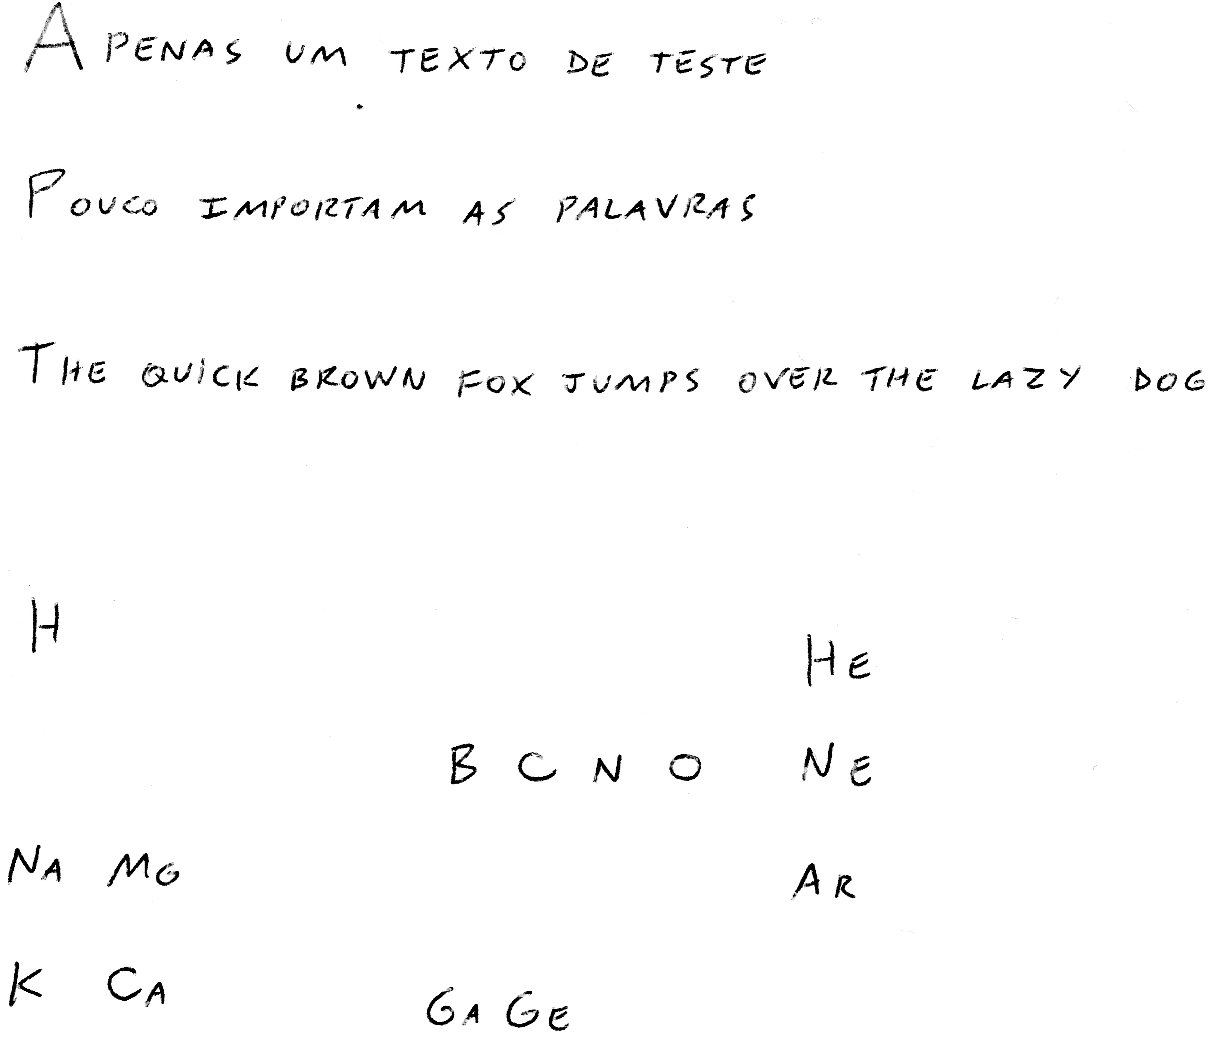 APENAS UM TEXTO DE TESTE
POUCO IMPORTAM AS PALAVRAS
THE QUICK BROWN FOX JUMPS OVER THE LAZY DOG
H
HE
B C N O NE
NA MG
AR
K CA
GA GE